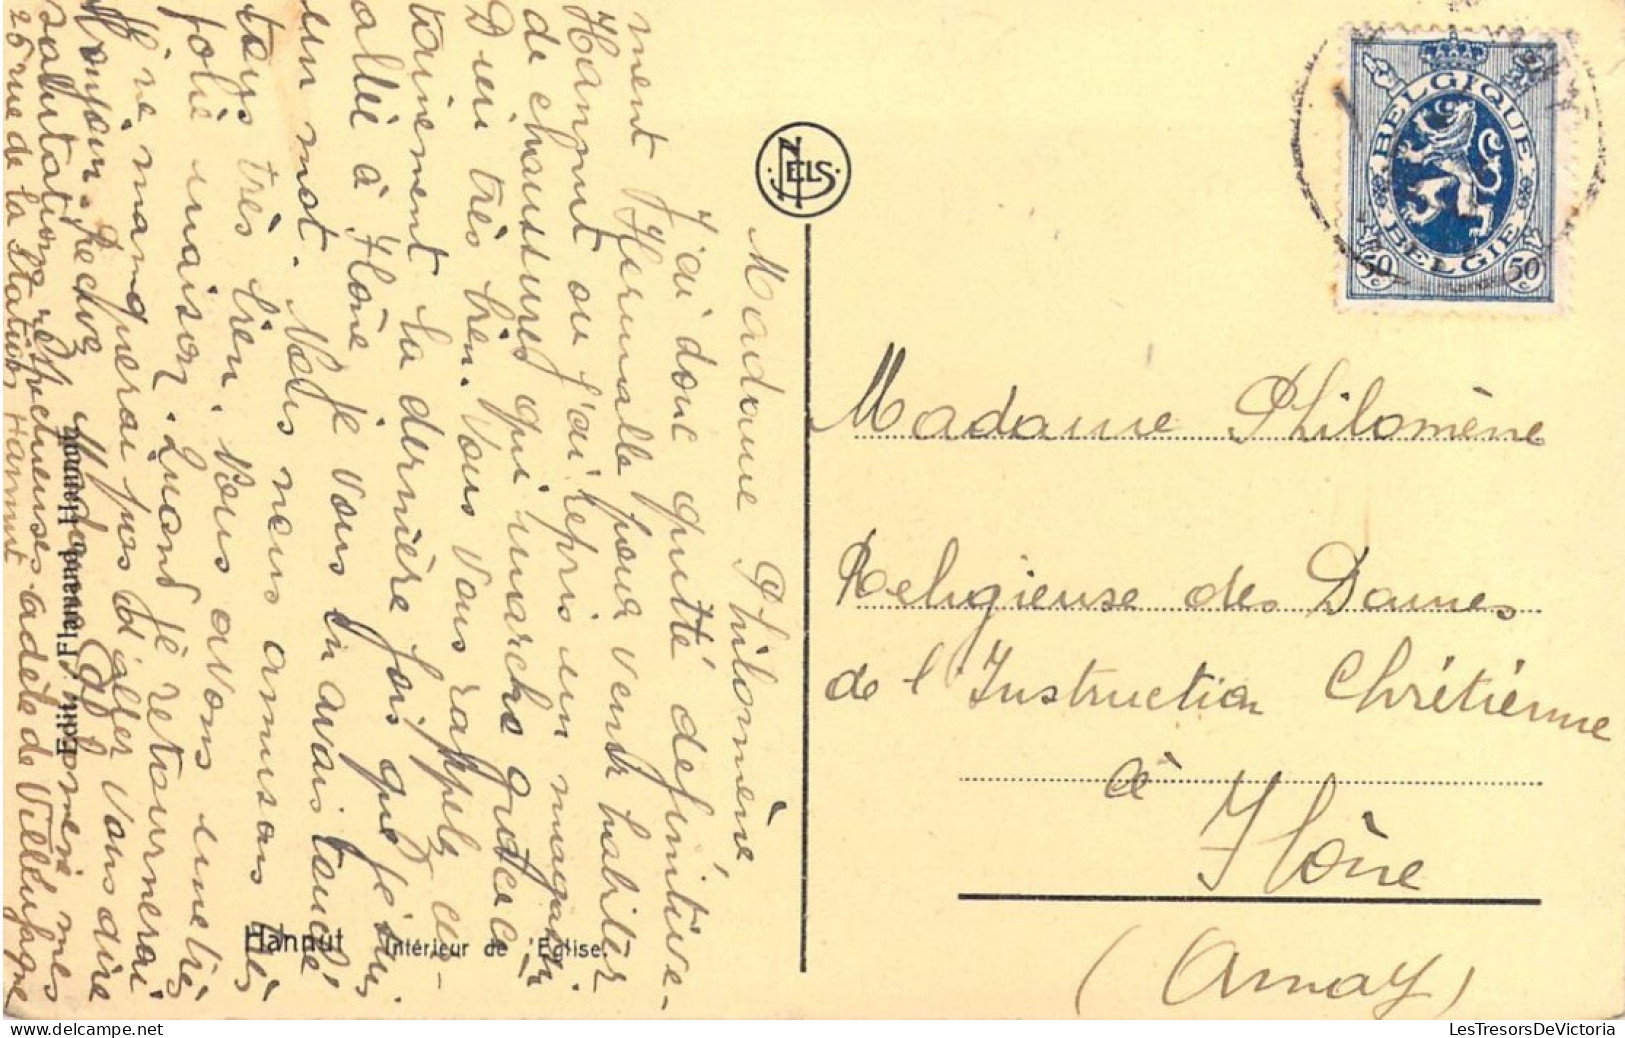 Madame Philomène
J'ai donc quitté définitive-
ment Hermalle pour venir habiter
Hannut où j'ai repris un magasin
de chaussures qui marche grâce à
Dieu très bien. Vous vous rappelez cer-
tainement la dernière fois que je suis
allée à Flône je vous en avais touché
un mot. Nous nous amusons ici
très bien. Nous avons une très
jolie maison. Quand je retournerai
je ne manquerai pas d'aller vous dire
bonjour. Recevez Madame Philomène mes
salutations respectueuses Adèle de Villenfagne
26 rue de la Station Hannut
NELS
BELGIQUE
BELGIE
50 c
50 c
Madame Philomène
Religieuse des Dames
de l'Instruction Chrétienne
à
Flône
(Amay)
Edit. J. Flamand, Hannut
Hannut Intérieur de l'Eglise.
LesTresorsDeVictoria
www.delcampe.net